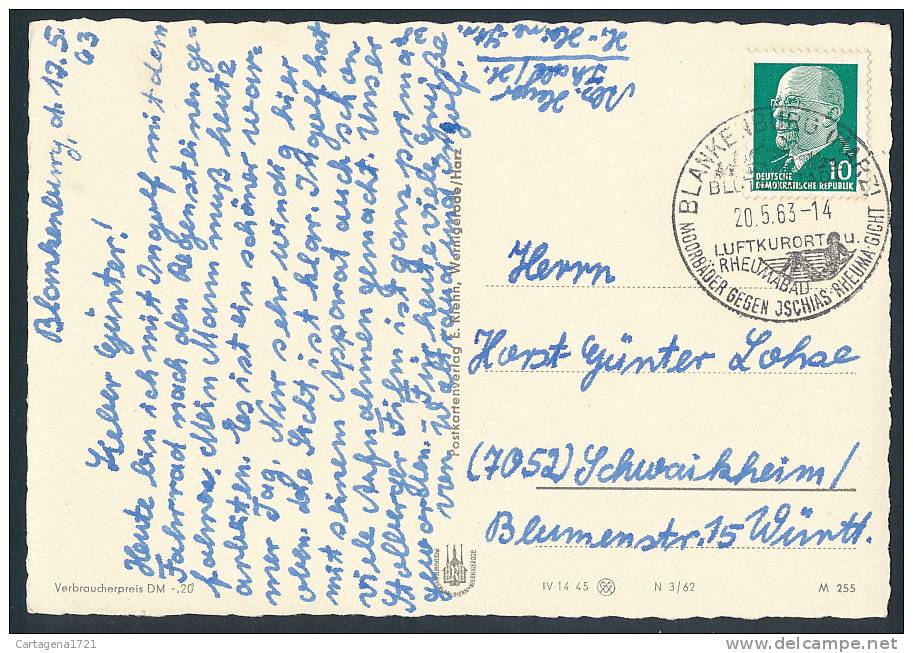 Blankenburg, d. 17.5.
63
Lieber Günter!
Heute bin ich mit Ingolf mit dem
Fahrrad nach den Regensteinen ge-
fahren. Mein Mann muß heute
arbeiten. Es ist ein schöner war-
mer Tag. Nur sehr windig hier
oben. die Sicht ist klar. Ingolf hat
mit seinem Apparat auch schon
viele Aufnahmen gemacht. Unser
Stolberger Film ist ganz prima
geworden. Für heute viele Grüße
von Waltraud und Ingolf.
Abs. Heyer
Thale/H.
H.-Heine Str.
38
Postkartenverlag E. Riehn, Wernigerode/Harz
DEUTSCHE
DEMOKRATISCHE REPUBLIK
10
BLANKENBURG (HARZ)
20.5.63-14
LUFTKURORT u.
RHEUMABAD
MOORBÄDER GEGEN ISCHIAS·RHEUMA·GICHT
Herrn
Horst Günter Lohse
(7052) Schwaikheim/
Blumenstr. 15 Württ.
Verbraucherpreis DM -.20
IV-14 45
N 3/62
M 255
Cartagena1721
delcampe.net